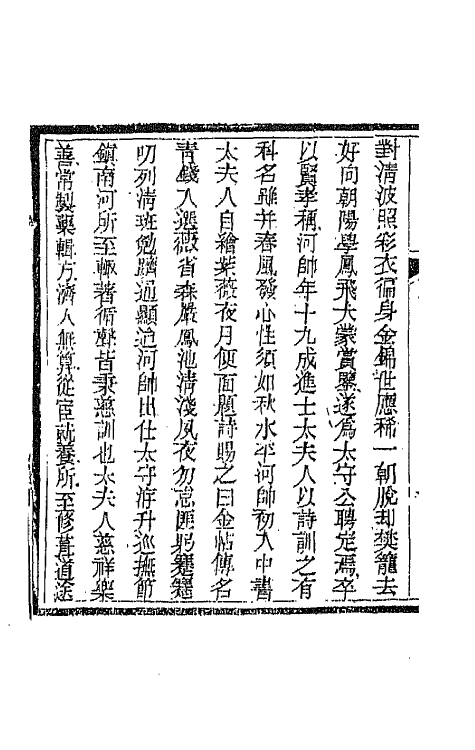 對清波照彩衣徧身金錦世應稀一朝脫却樊籠去
好向朝陽學鳳飛大蒙賞鑒遂爲太守公聘定焉卒
以賢孝稱河帥年十九成進士太夫人以詩訓之有
科名雖并春風發心性須如秋水平河帥初入中書
太夫人自繪紫薇夜月便面題詩賜之曰金帖傳名
青錢入選薇省森嚴鳳池清淺夙夜勿忘匪躬蹇蹇
叨列清班勉躋通顯迨河帥出仕太守洊升巡撫節
鎮南河所至輒著循聲皆秉慈訓也太夫人慈祥樂
善常製藥輯方濟人無算從宦就養所至修葺道途